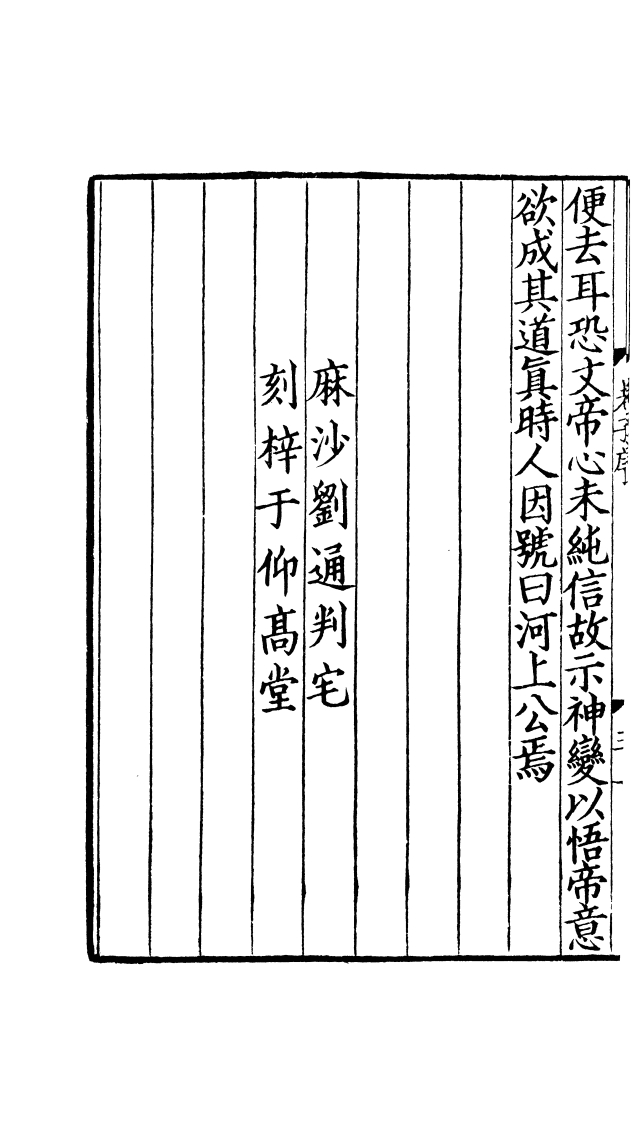 便去耳恐文帝心未純信故示神變以悟帝意
欲成其道眞時人因號曰河上公焉
麻沙劉通判宅
刻梓于仰高堂